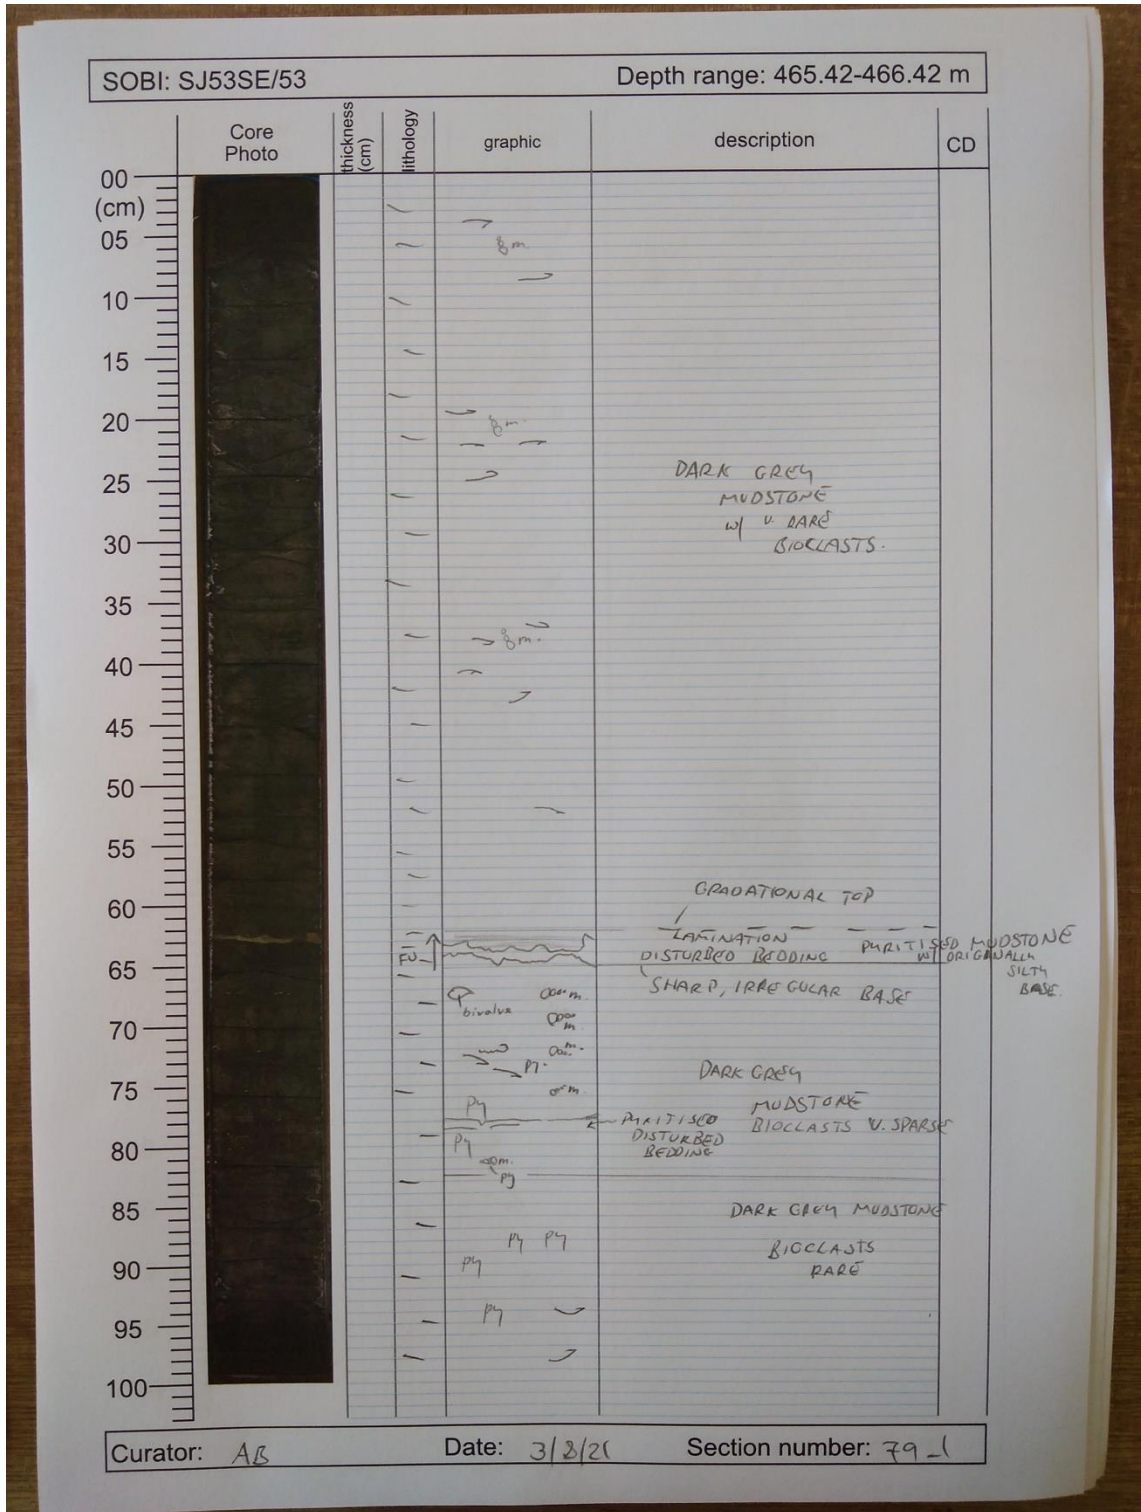 SOBI: SJ53SE/53
Depth range: 465.42-466.42 m
Core
Photo
thickness
(cm)
lithology
graphic
description
CD
00
(cm)
05
10
15
20
25
30
35
40
45
50
55
60
65
70
75
80
85
90
95
100
m
m.
DARK GREY
MUDSTONE
w/ V. RARE
BIOCLASTS.
m.
GRADATIONAL TOP
LAMINATION
DISTURBED BEDDING
PYRITISED MUDSTONE
w/ ORIGINALLY
SILTY
BASE.
FU
SHARP, IRREGULAR BASE
bivalve
m.
m
m.
py.
m.
DARK GREY
MUDSTONE
BIOCLASTS V. SPARSE
py
PYRITISED
DISTURBED
BEDDING
py
m.
py
DARK GREY MUDSTONE
BIOCLASTS
RARE
py py
py
py
Curator: AB
Date: 3/8/21
Section number: 79_1